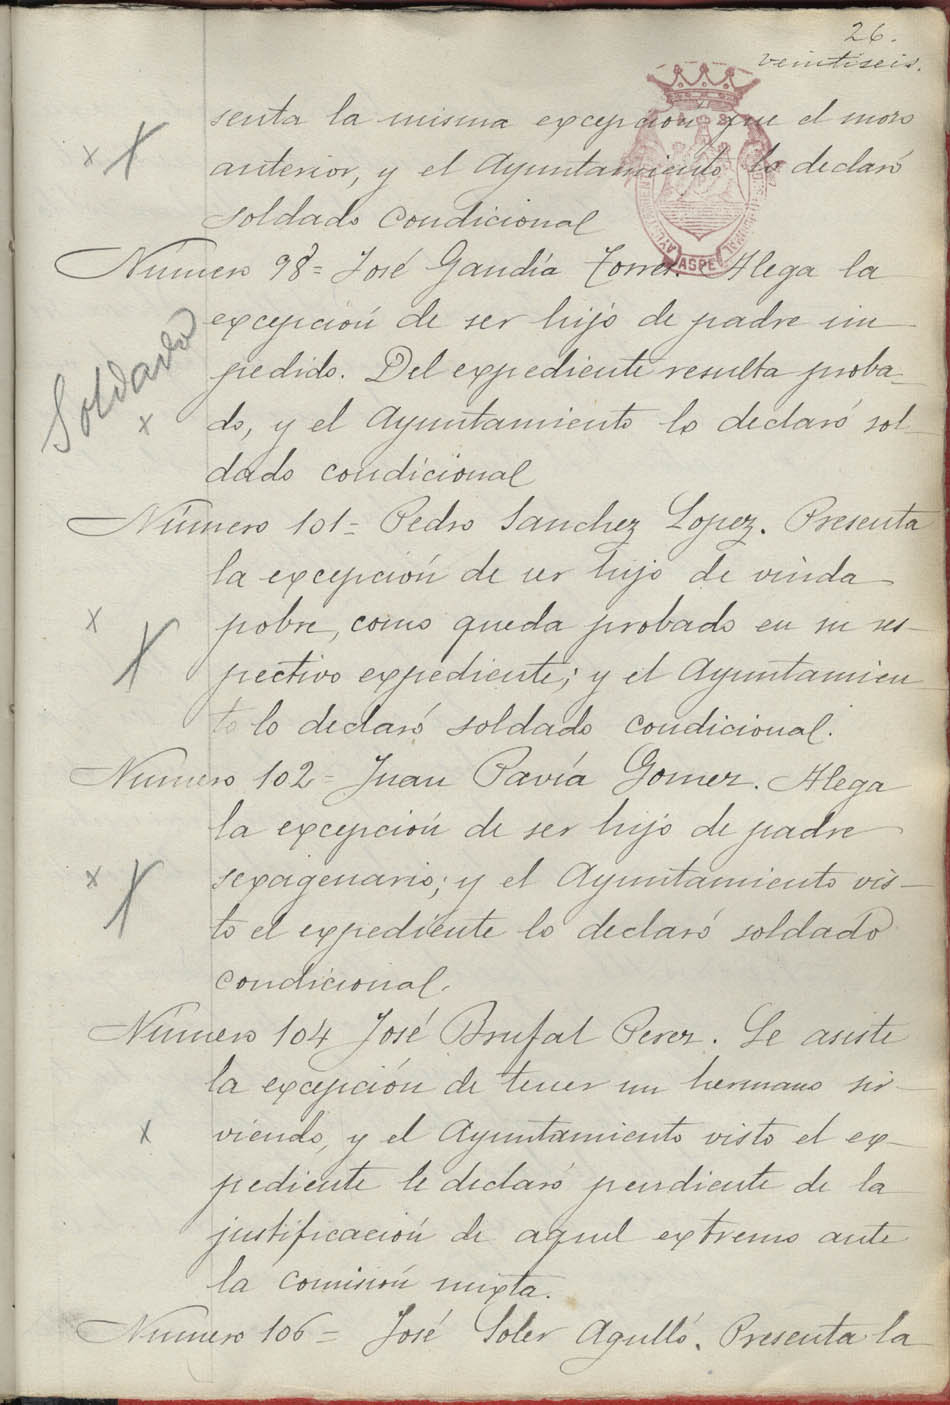 26.
veintiseis.
senta la misma excepción que el mozo
anterior, y el Ayuntamiento lo declaró
soldado condicional
Número 98= José Gandía Torres. Alega la
excepción de ser hijo de padre im
pedido. Del expediente resulta proba-
do, y el Ayuntamiento lo declaró sol
dado condicional
Soldado
Número 101= Pedro Sanchez Lopez. Presenta
la excepción de ser hijo de viuda
pobre, como queda probado en su res-
pectivo expediente; y el Ayuntamien
to lo declaró soldado condicional.
Numero 102= Juan Pavía Gomez. Alega
la excepción de ser hijo de padre
sexagenario; y el Ayuntamiento vis-
to el expediente lo declaró soldado
condicional.
Número 104 José Brufal Perez. Le asiste
la excepción de tener un hermano sir-
viendo, y el Ayuntamiento visto el ex-
pediente le declaró pendiente de la
justificación de aquel extremo ante
la Comisión mixta.
Numero 106= José Soler Agulló. Presenta la
ASPE